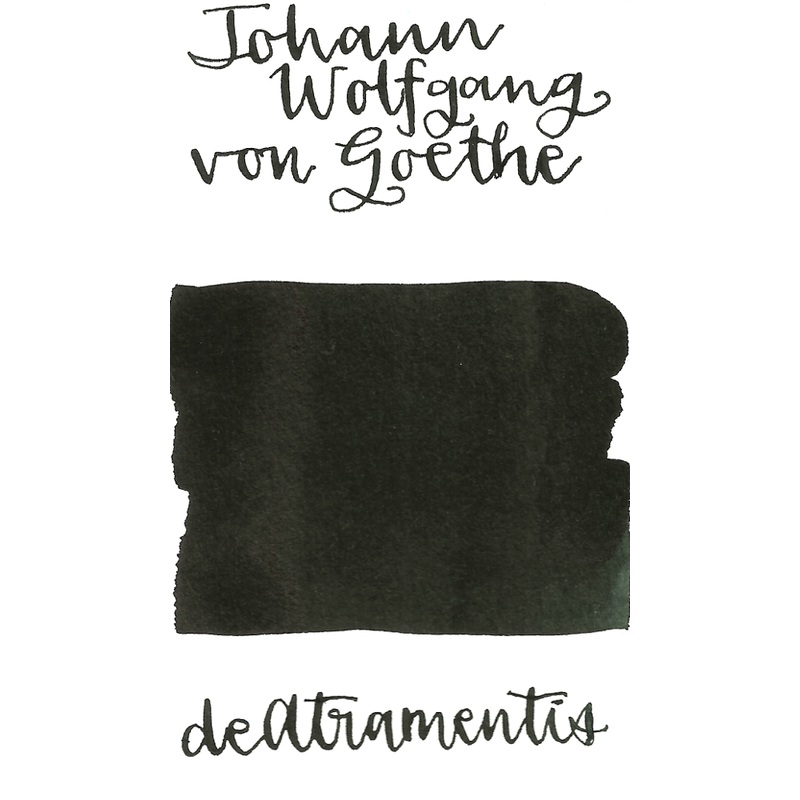 Johann
Wolfgang
von Goethe
deAtramentis